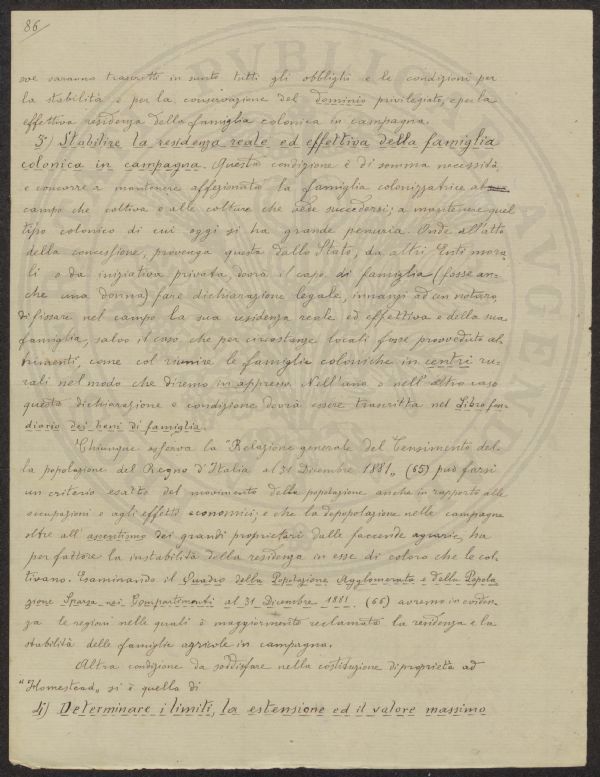 86
ove saranno trascritti in sunto tutti gli obblighi e le condizioni per
la stabilità e per la conservazione del dominio privilegiato, e per la
effettiva residenza della famiglia colonica in campagna.
3°) Stabilire la residenza reale ed effettiva della famiglia
colonica in campagna. Questa condizione è di somma necessità,
e concorre a mantenere affezionata la famiglia colonizzatrice al
campo che coltiva e alle colture che vede succedersi; a mantenere quel
tipo colonico di cui oggi si ha grande penuria. Onde all'atto
della concessione, provenga questa dallo Stato, da altri Enti mora
li o da iniziativa privata, dovrà il capo di famiglia (fosse an-
che una donna) fare dichiarazione legale, innanzi ad un notaro,
di fissare nel campo la sua residenza reale ed effettiva e della sua
famiglia, salvo il caso che per circostanze locali fosse provveduto al-
trimenti, come col riunire le famiglie coloniche in centri ru-
rali nel modo che diremo in appresso. Nell'uno o nell'altro caso
questa dichiarazione e condizione dovrà essere trascritta nel Libro fon-
diario dei beni di famiglia.
Chiunque osserva la "Relazione generale del Censimento del-
la popolazione del Regno d'Italia al 31 Dicembre 1881„ (65) può farsi
un criterio esatto del movimento della popolazione anche in rapporto alle
occupazioni e agli effetti economici; e che la depopolazione nelle campagne
oltre all'assenteismo dei grandi proprietari dalle faccende agrarie, ha
per fattore la instabilità della residenza in esse di coloro che le col-
tivano. Esaminando il Quadro della Popolazione Agglomerata e della Popola
zione Sparsa nei Compartimenti al 31 Dicembre 1881. (66) avremo in eviden-
za le regioni nelle quali è maggiormente reclamata la residenza e la
stabilità delle famiglie agricole in campagna.
Altra condizione da soddisfare nella costituzione di proprietà ad
"Homestead„ si è quella di
4) Determinare i limiti, la estensione ed il valore massimo
PVBLICA
AVGENDO